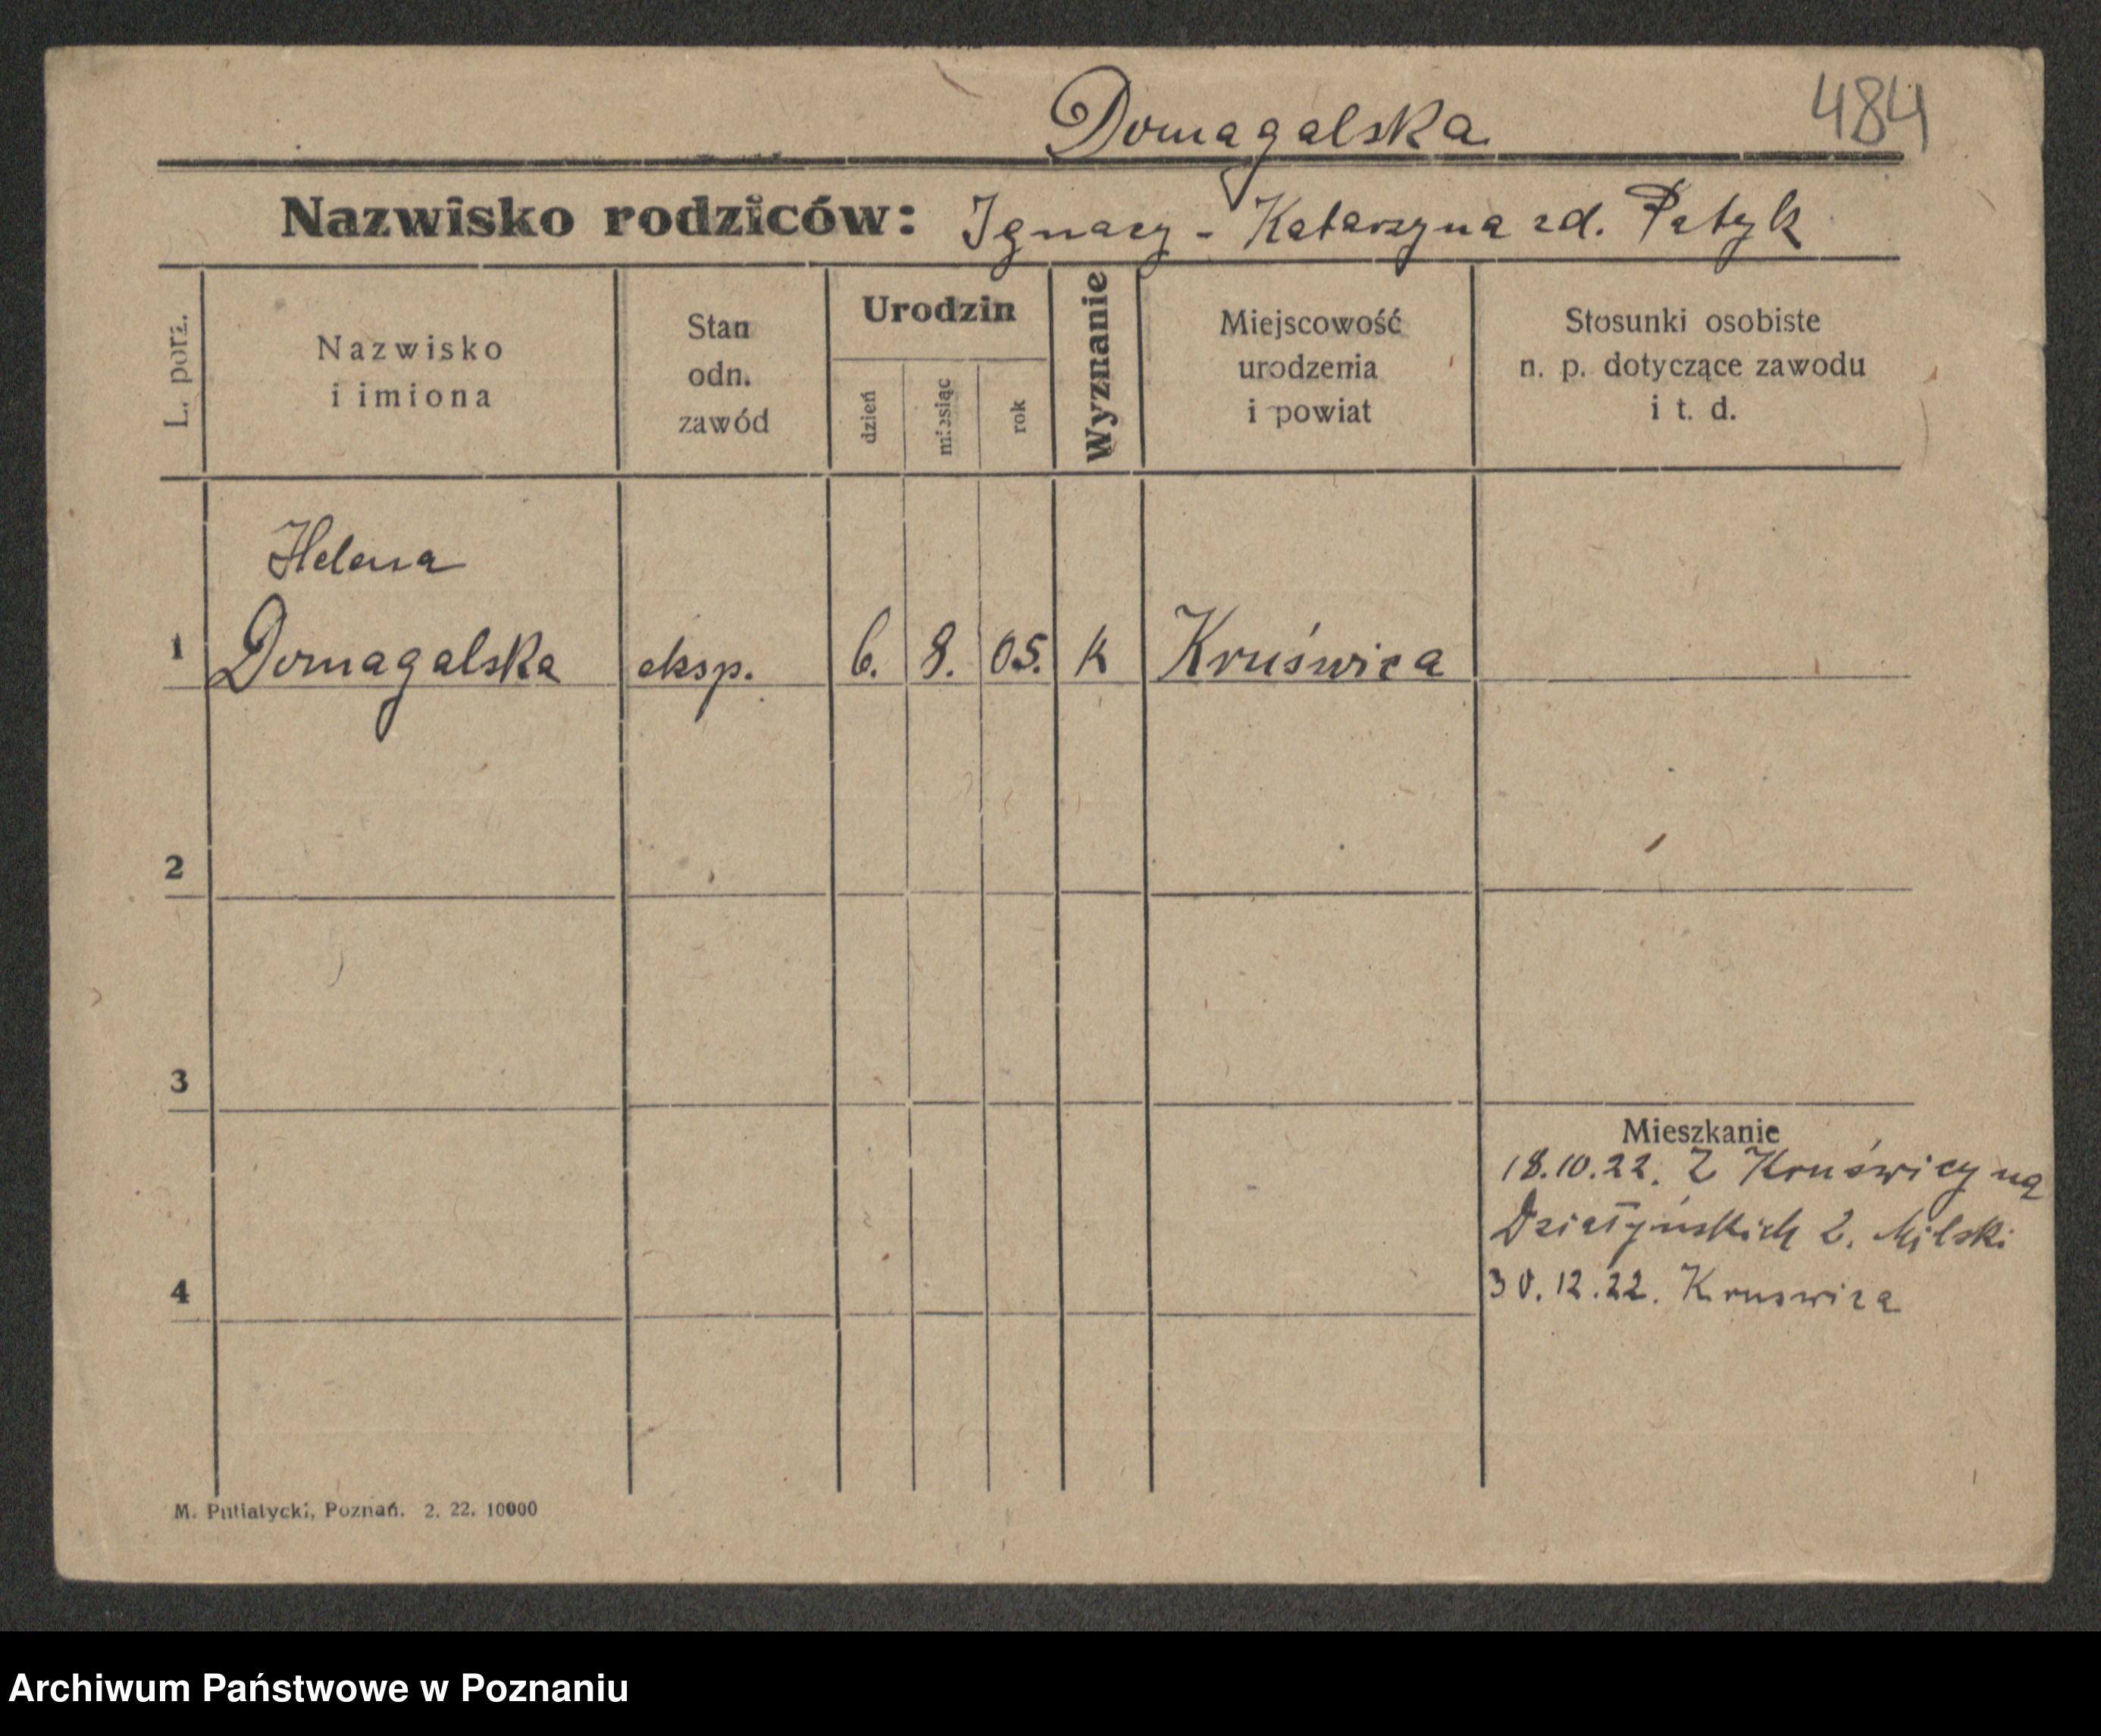 Domagalska
484
Nazwisko rodziców: Ignacy - Katarzyna zd. Patyk
L. porz.
Nazwisko
i imiona
Stan
odn.
zawód
Urodzin
dzień
miesiąc
rok
Wyznanie
Miejscowość
urodzenia
i powiat
Stosunki osobiste
n. p. dotyczące zawodu
i t. d.
Helena
1 Domagalska eksp. 6. 8. 05. k Kruświca
2
3
Mieszkanie
18.10.22. Z Kruświcy na
Działyńskich 2. Milski
4
30.12.22. Kruswica
M. Putiatycki, Poznań. 2. 22. 10000
Archiwum Państwowe w Poznaniu